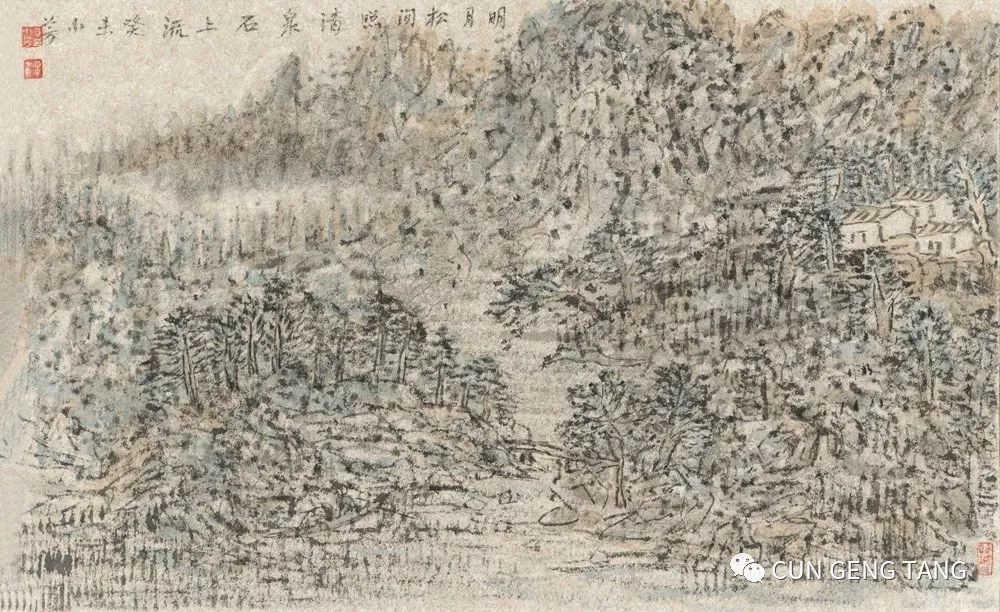 明月松间照清泉石上流癸未小
CUN GENG TANG